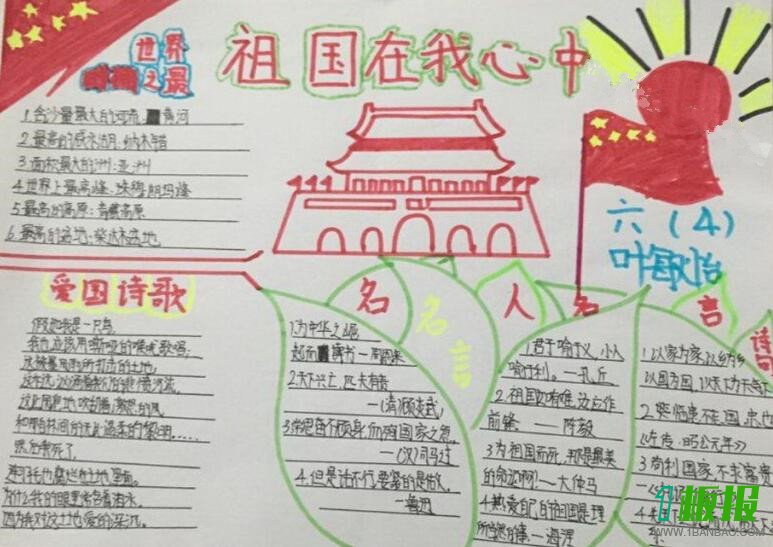 祖国在我心中
世界
之最
1.含沙量最大的河流:黄河
2.最高的咸水湖:纳木错
3.面积最大的洲:亚洲
4.世界上最高峰:珠穆朗玛峰
5.最高的高原:青藏高原
6.最高的盆地:柴达木盆地
六(4)
叶敏怡
爱国诗歌
假如我是一只鸟,
我也应该用嘶哑的喉咙歌唱:
这被暴风雨所打击的土地
这永远汹涌着我们的悲愤的河流,
这无止息地吹刮着的激怒的风,
和那来自林间的无比温柔的黎明……
然后我死了,
连羽毛也腐烂在土地里面。
为什么我的眼里常含着泪水,
因为我对这土地爱的深沉。
名人名言
名言
1.为中华之崛
起而读书—周恩来
2.天下兴亡,匹夫有责
—(清)顾炎武
3.常思奋不顾身,而殉国家之急
—(汉)司马迁
4.但是说不行,要紧的是做
—鲁迅
1.君子喻于义,小人
喻于利。—孔丘
2.祖国如有难,汝应作
前锋 —陈毅
3.为祖国而死,那是最美
的命运啊!—大仲马
4.热爱自己的祖国是理
所当然的事—海涅
诗句
1.以家为家,以乡为乡,
以国为国,以天下为天下
2.临患不忘国,忠也
《左传·昭公元年》
3.苟利国家,不求富贵
板报
WWW.1BANBAO.COM